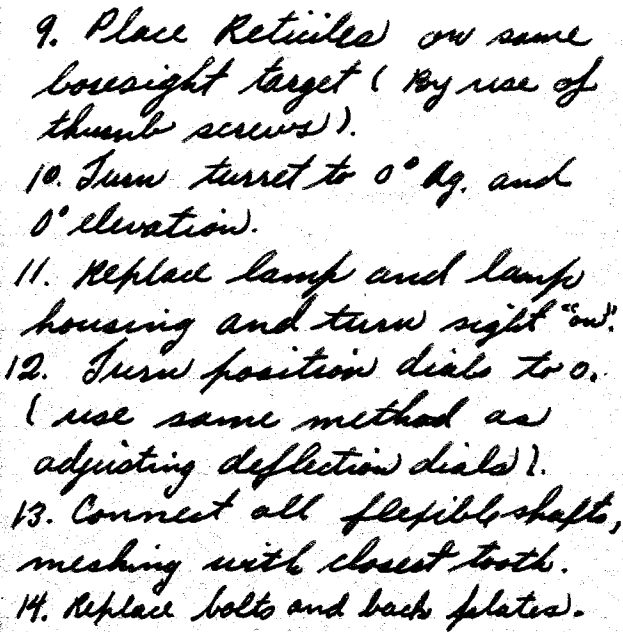 9. Place Reticiles on same
boresight target (By use of
thumb screws).
10. Turn turret to 0° Ag. and
0° elevation.
11. Replace lamp and lamp
housing and turn sight "on".
12. Turn position dials to 0.
(use same method as
adjusting deflection dials).
13. Connect all flexible shafts,
meshing with closest tooth.
14. Replace bolts and back plates.